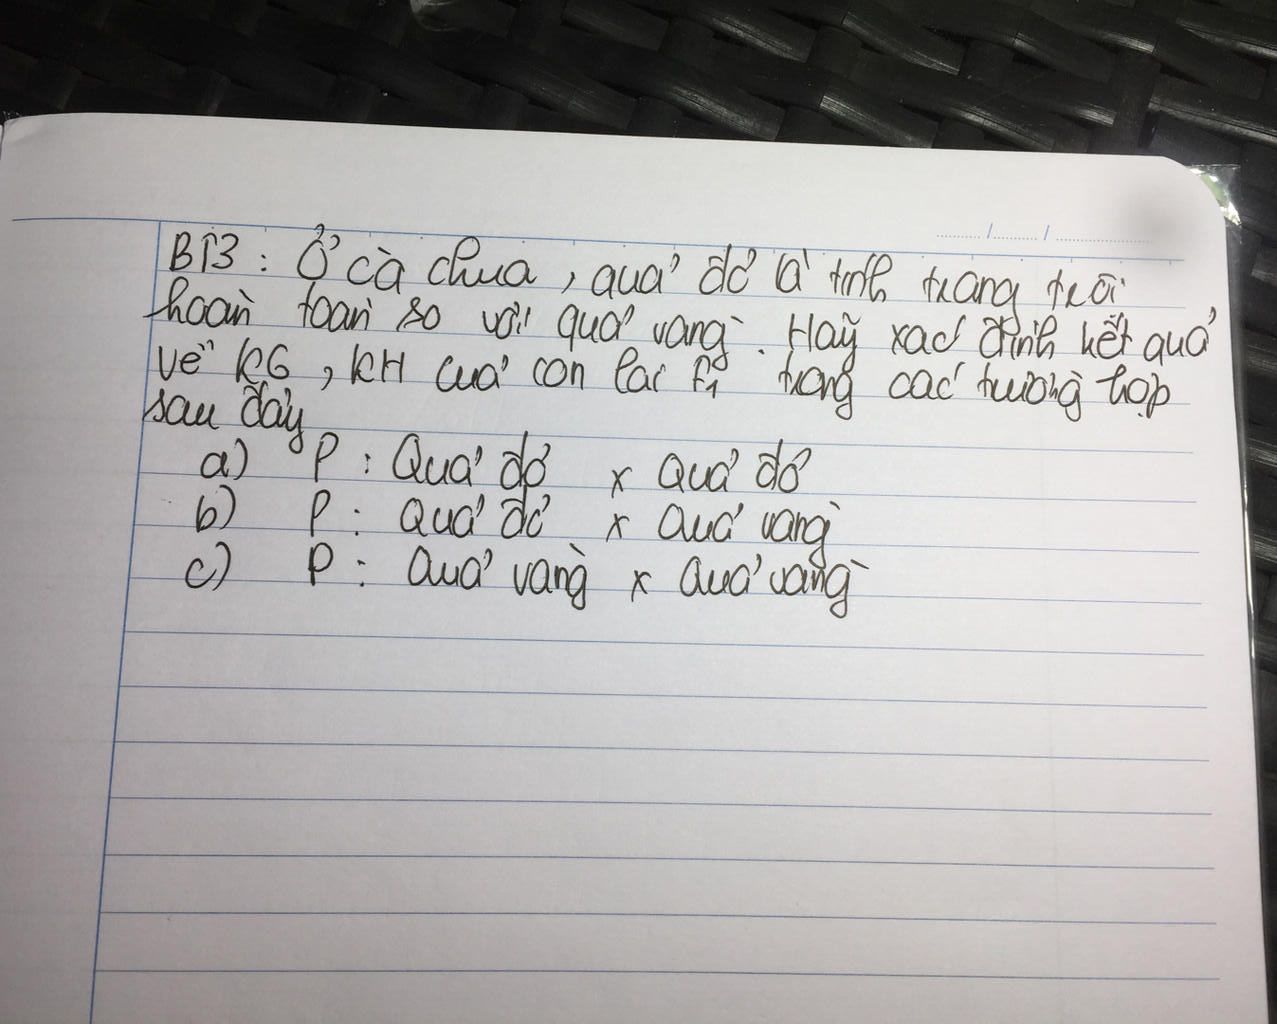 BT3 : Ở cà chua, quả đỏ là tính trạng trội
hoàn toàn so với quả vàng. Hãy xác định kết quả
về KG, KH của con lai F1 trong các trường hợp
sau đây
a) P : Quả đỏ x Quả đỏ
b) P : Quả đỏ x Quả vàng
c) P : Quả vàng x Quả vàng